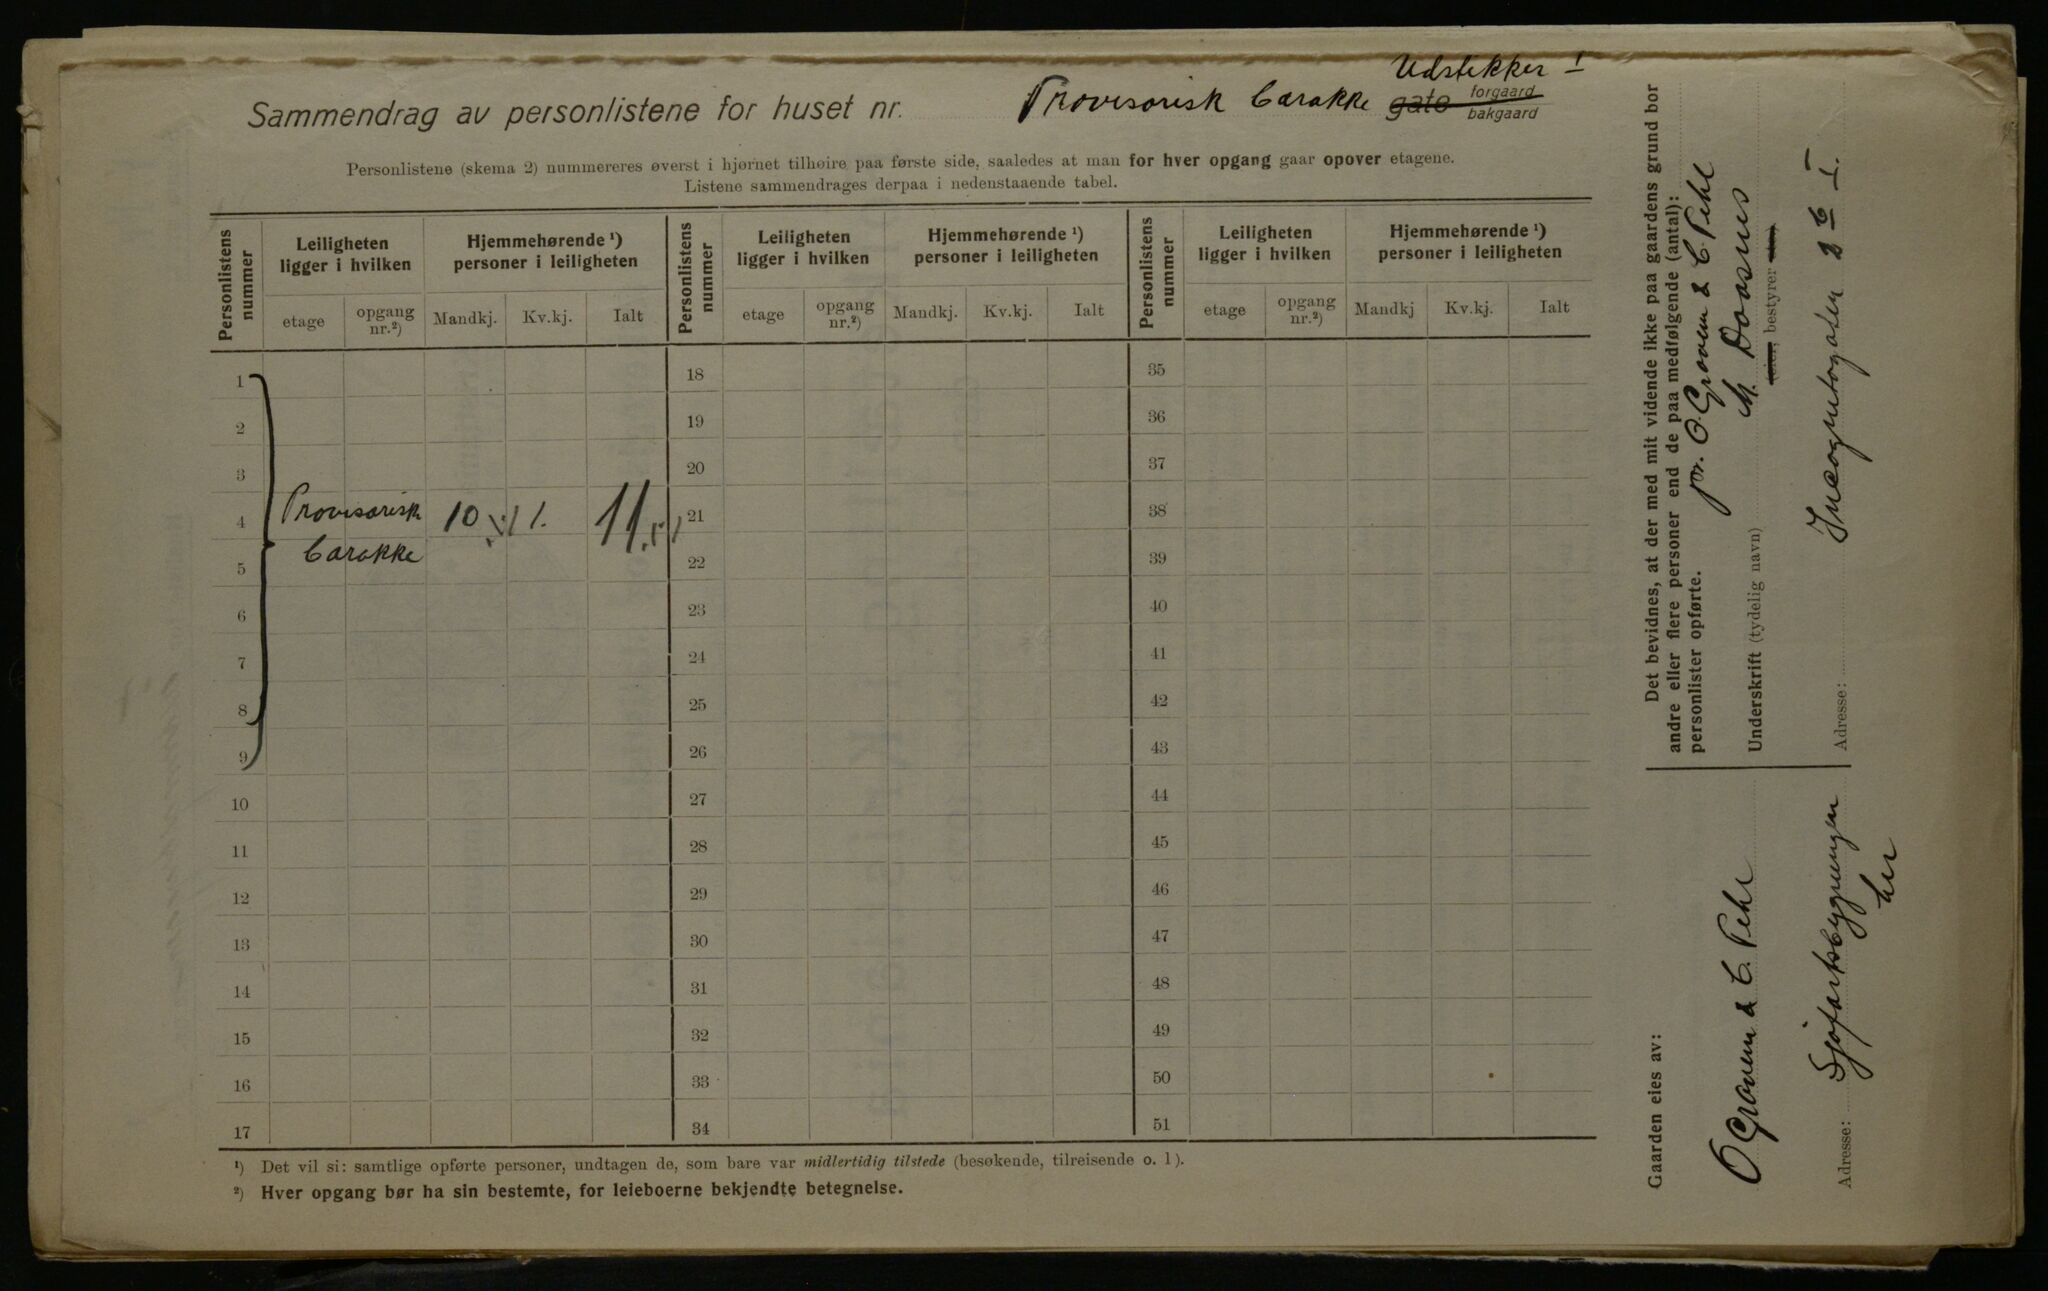 Udstekker I
Sammendrag av personlistene for huset nr. Provisorisk Barakke gate forgaard bakgaard
Personlistene (skema 2) nummereres øverst i hjørnet tilhøire paa første side, saaledes at man for hver opgang gaar opover etagene.
Listene sammendrages derpaa i nedenstaaende tabel.
Personlistens nummer
Leiligheten ligger i hvilken
Hjemmehørende ¹) personer i leiligheten
Personlistens nummer
Leiligheten ligger i hvilken
Hjemmehørende ¹) personer i leiligheten
Personlistens nummer
Leiligheten ligger i hvilken
Hjemmehørende ¹) personer i leiligheten
etage opgang nr.²) Mandkj. Kv.kj. Ialt etage opgang nr.²) Mandkj. Kv.kj. Ialt etage opgang nr.²) Mandkj Kv.kj. Ialt
1 18 35
2 19 36
3 20 37
4 Provisorisk 10 1. 11 21 38
5 Barakke 22 39
6 23 40
7 24 41
8 25 42
9 26 43
10 27 44
11 28 45
12 29 46
13 30 47
14 31 48
15 32 49
16 33 50
17 34 51
¹) Det vil si: samtlige opførte personer, undtagen de, som bare var midlertidig tilstede (besøkende, tilreisende o. l).
²) Hver opgang bør ha sin bestemte, for leieboerne bekjendte betegnelse.
Det bevidnes, at der med mit vidende ikke paa gaardens grund bor
andre eller flere personer end de paa medfølgende (antal):
personlister opførte.
pr. O. Groven & C Pihl
Underskrift (tydelig navn) M.
(eier, bestyrer
Adresse: Incognitogaten 2 b I.
Gaarden eies av:
O Groven & C. Pihl
Adresse: Sjøfartsbygningen
her